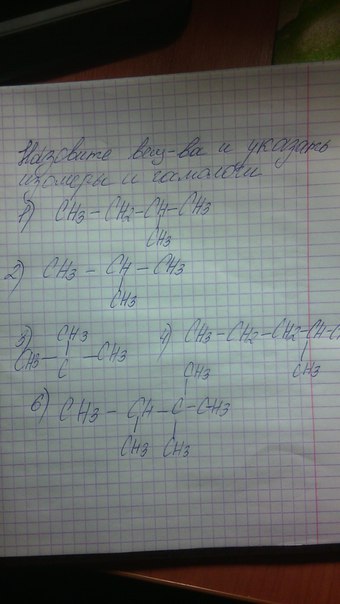 Назовите вещ-ва и указать
изомеры и гамологи
1) CH3-CH2-CH-CH3
CH3
2) CH3 - CH - CH3
CH3
3) CH3
CH3 - C - CH3
4) CH3-CH2-CH2-CH-C
CH3
6) CH3
CH3 - CH - C - CH3
CH3 CH3